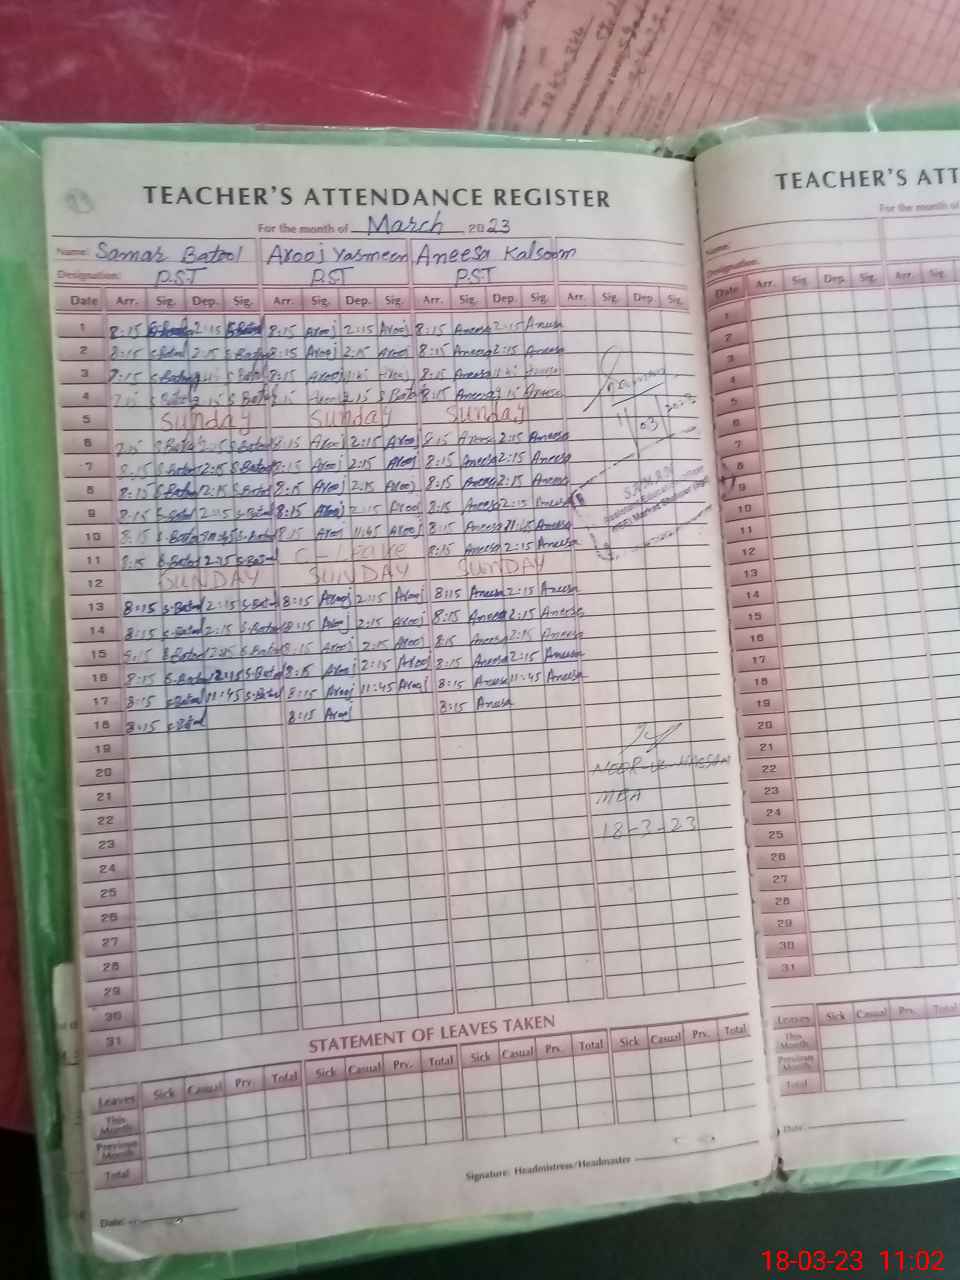 TEACHER'S ATTENDANCE REGISTER
For the month of March 2023
Name: Samar Batool Arooj Yasmeen Aneesa Kalsoom
Designation: P.S.T P.S.T P.S.T
Date Arr. Sig. Dep. Sig. Arr. Sig. Dep. Sig. Arr. Sig. Dep. Sig. Arr. Sig. Dep. Sig.
1 8:15 2:15 8:15 Arooj 2:15 Arooj 8:15 Aneesa 2:15 Aneesa
2 8:15 S.Batool 2:15 S.Batool 8:15 Arooj 2:15 Arooj 8:15 Aneesa 2:15 Aneesa
3 8:15 S.Batool S.Batool 8:15 Arooj 11:45 Arooj 8:15 Aneesa 11:45 Aneesa
4 S.Batool 2:15 Arooj 2:15 8:15 Aneesa 2:15 Aneesa
5 Sunday Sunday Sunday
6 S.Batool S.Batool 8:15 Arooj 2:15 Arooj 8:15 Aneesa 2:15 Aneesa
7 8:15 S.Batool 2:15 S.Batool 8:15 Arooj 2:15 Arooj 8:15 Aneesa 2:15 Aneesa
8 8:15 S.Batool 2:15 S.Batool 8:15 Arooj 2:15 Arooj 8:15 Aneesa 2:15 Aneesa
9 8:15 S.Batool 2:15 S.Batool 8:15 Arooj 2:15 Arooj 8:15 Aneesa 2:15 Aneesa
10 8:15 S.Batool 11:45 S.Batool 8:15 Arooj 11:45 Arooj 8:15 Aneesa 11:45 Aneesa
11 8:15 S.Batool 2:15 S.Batool C-Leave 8:15 Aneesa 2:15 Aneesa
12 SUNDAY SUNDAY SUNDAY
13 8:15 S.Batool 2:15 S.Batool 8:15 Arooj 2:15 Arooj 8:15 Aneesa 2:15 Aneesa
14 8:15 S.Batool 2:15 S.Batool 8:15 Arooj 2:15 Arooj 8:15 Aneesa 2:15 Aneesa
15 8:15 S.Batool 2:15 S.Batool 8:15 Arooj 2:15 Arooj 8:15 Aneesa 2:15 Aneesa
16 8:15 S.Batool 2:15 S.Batool 8:15 Arooj 2:15 Arooj 8:15 Aneesa 2:15 Aneesa
17 8:15 S.Batool 11:45 S.Batool 8:15 Arooj 11:45 Arooj 8:15 Aneesa 11:45 Aneesa
18 8:15 S.Batool 8:15 Arooj 8:15 Aneesa
19
20
21
22
23
24
25
26
27
28
29
30
31
11 03 2023
NOOR-UL-HASSAN
MEA
18-3-23
STATEMENT OF LEAVES TAKEN
Leaves Sick Casual Prv. Total Sick Casual Prv. Total Sick Casual Prv. Total Sick Casual Prv. Total
This Month
Previous Month
Total
Signature: Headmistress/Headmaster
Date:
TEACHER'S ATT
For the month of
Name:
Designation:
Date Arr. Sig. Dep. Sig. Arr. Sig.
1
2
3
4
5
6
7
8
9
10
11
12
13
14
15
16
17
18
19
20
21
22
23
24
25
26
27
28
29
30
31
Leaves Sick Casual Prv. Total
This Month
Previous Month
Total
Date:
18-03-23 11:02